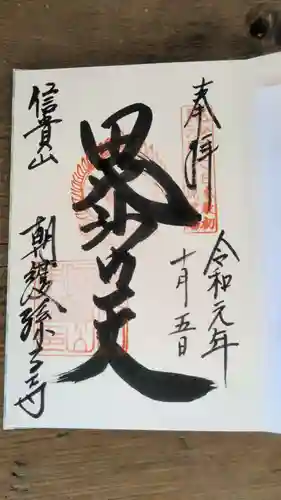 奉拝
令和元年
十月五日
毘沙門天
信貴山 朝護孫子寺